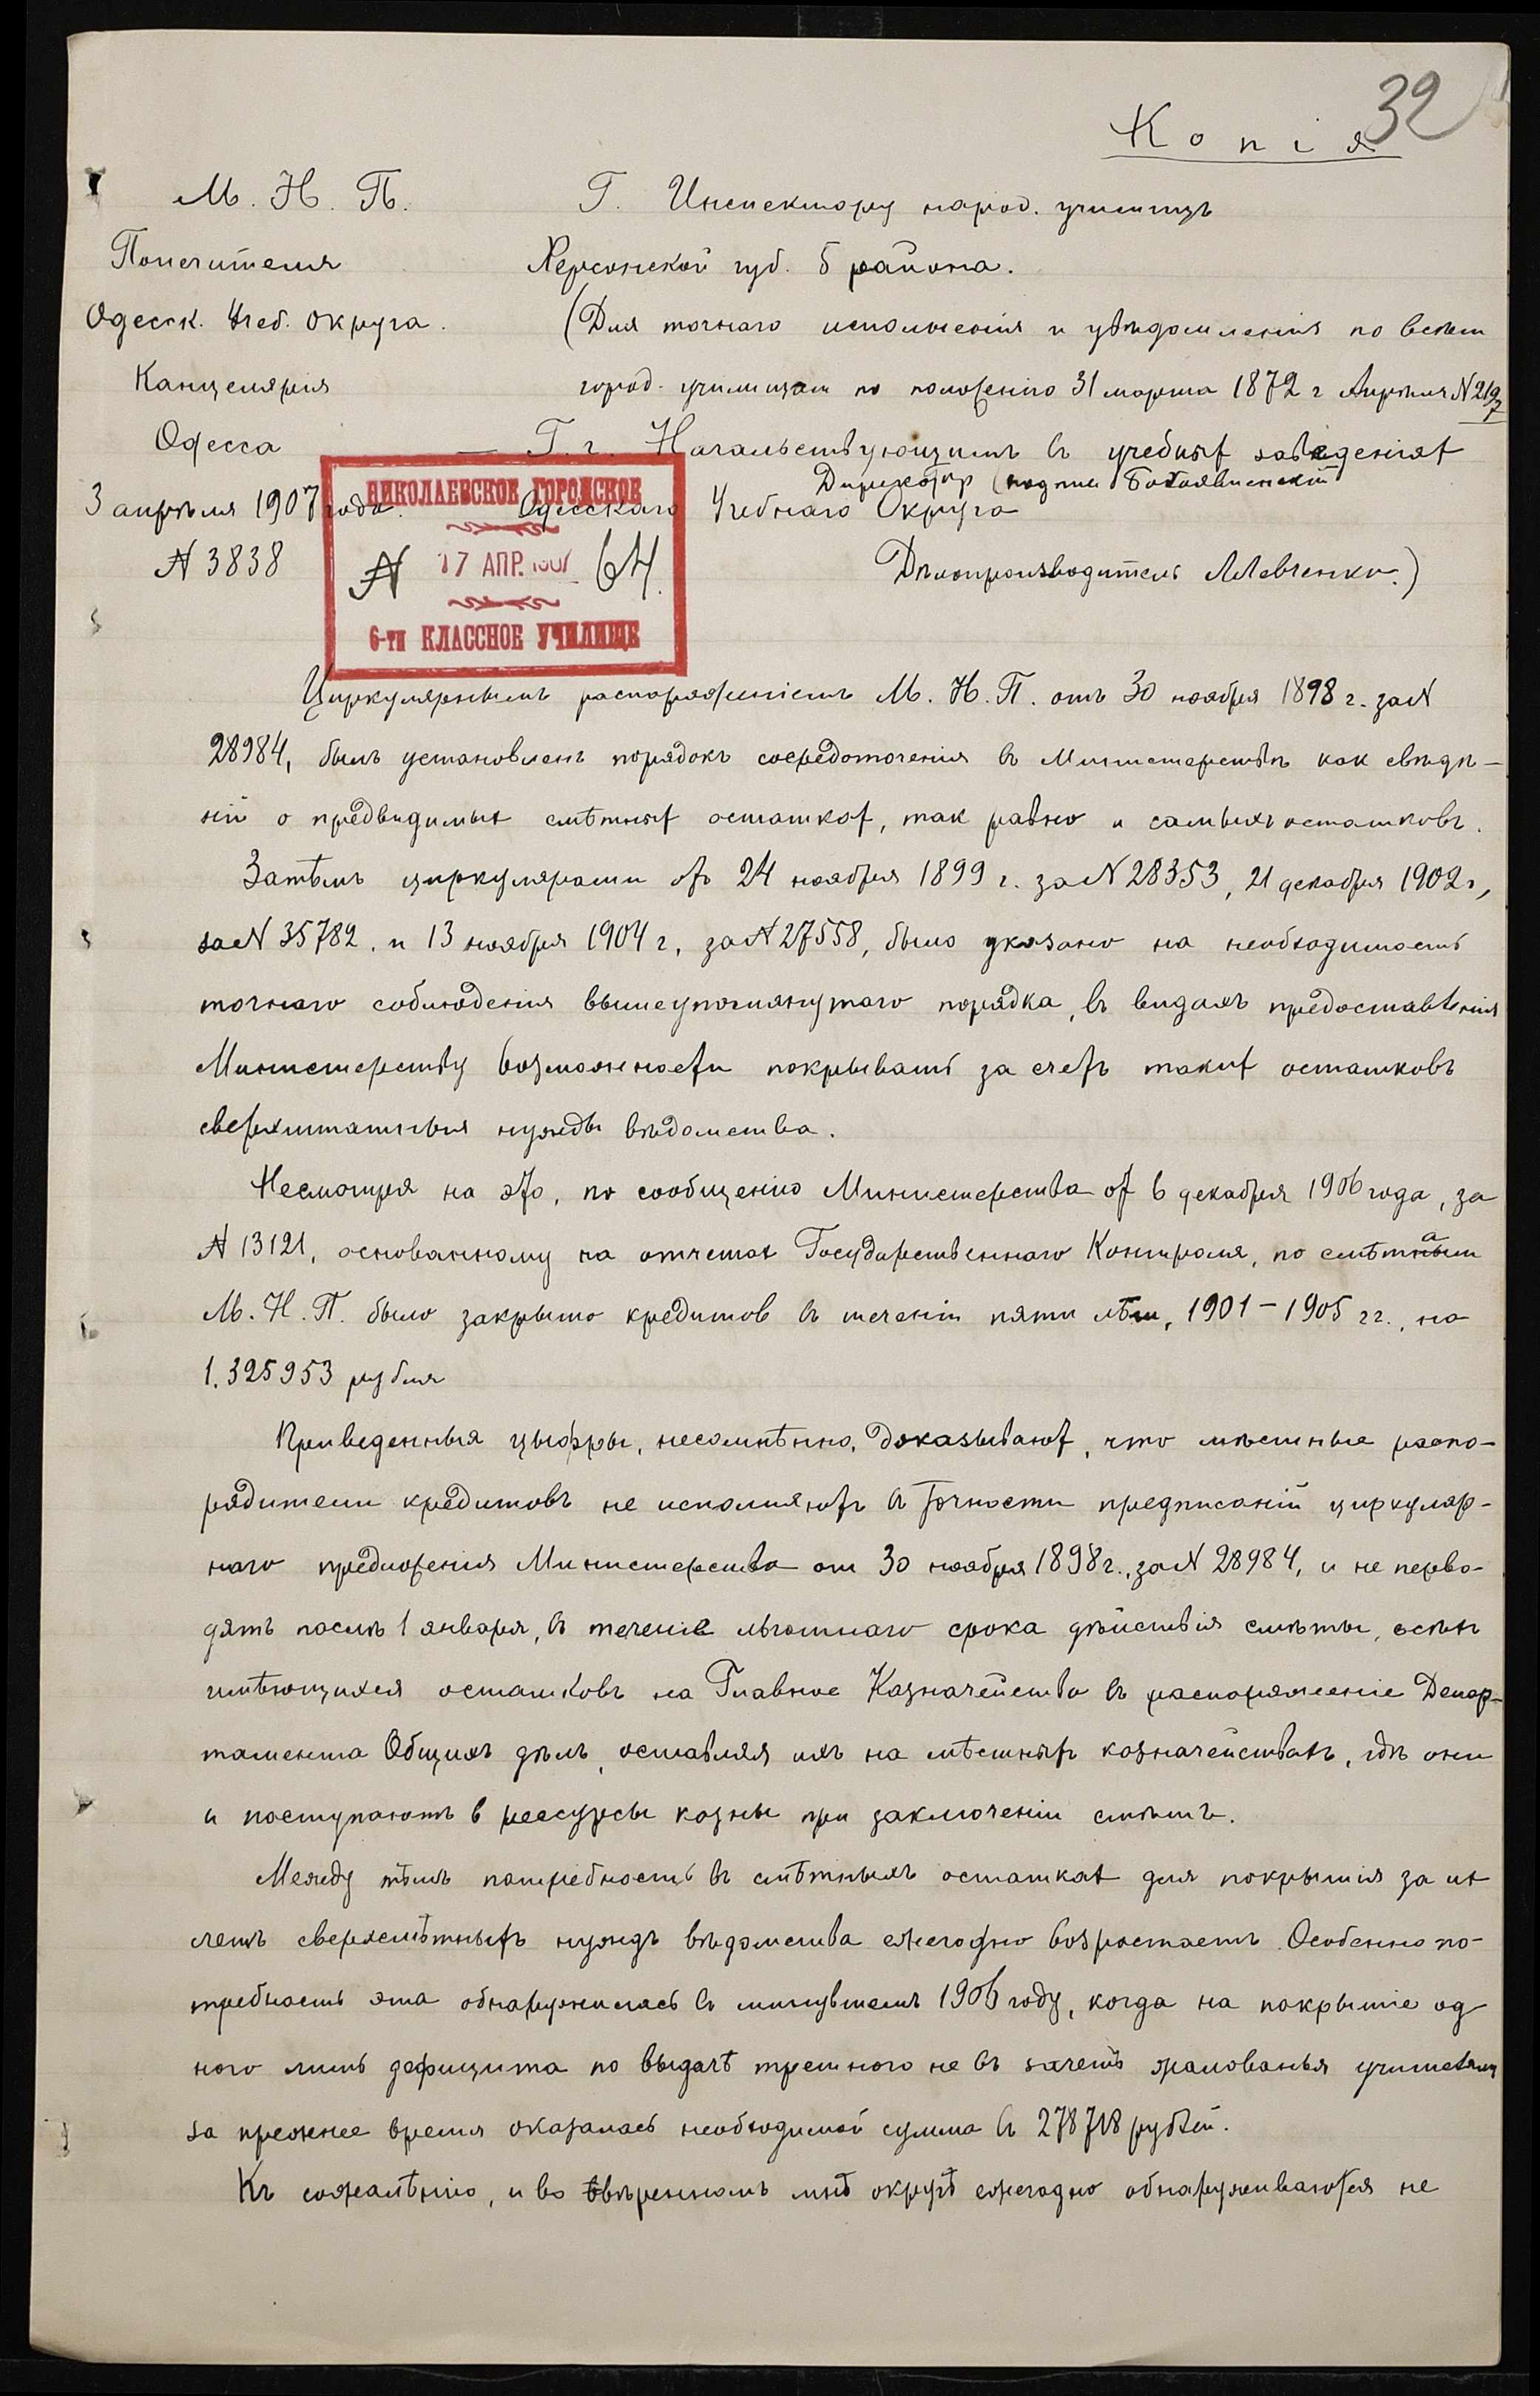 32
Копія
М. Н. П.
Попечителя
Одесск. Учеб. Округа.
Канцелярія
Одесса
3 апрѣля 1907 года.
№ 3838
Г. Инспектору народ. училищъ
Херсонской губ. 5 района.
(Для точнаго исполненія и увѣдомленія по всѣм
город. училищам по положенію 31 марта 1872 г Апрѣля № 2197
Г.г. Начальствующимъ въ учебных заведеніях
Директор (подпис Богоявленскій
Одесскаго Учебнаго Округа
Дѣлопроизводитель Левченко.)
НИКОЛАЕВСКОЕ ГОРОДСКОЕ
№ 17 АПР. 1907 64.
6-ти КЛАССНОЕ УЧИЛИЩЕ
Циркулярнымъ распоряженіемъ М. Н. П. отъ 30 ноября 1898 г. за №
28984, былъ установленъ порядокъ сосредоточенія въ Министерствѣ как свѣдѣ-
ній о предвидимых смѣтных остатках, так равно и самыхъ остатковъ.
Затѣмъ циркулярами отъ 24 ноября 1899 г. за № 28353, 21 декабря 1902 г,
за № 35782, и 13 ноября 1904 г, за № 27558, было указано на необходимость
точнаго соблюденія вышеупомянутаго порядка, въ видахъ предоставленія
Министерству возможности покрывать за счетъ таких остатковъ
сверхштатныя нужды вѣдомства.
Несмотря на это, по сообщенію Министерства от 6 декабря 1906 года, за
№ 13121, основанному на отчетах Государственнаго Контроля, по смѣтнам
М. Н. П. было закрыто кредитов въ теченіи пяти лѣт, 1901-1905 гг., на
1.325953 рубля
Приведенныя цыфры, несомнѣнно, доказывают, что мѣстные распо-
рядители кредитовъ не исполняютъ въ точности предписаній циркуляр-
наго предложенія Министерства от 30 ноября 1898 г., за № 28984, и не перево-
дятъ послѣ 1 января, въ теченіе льготнаго срока дѣйствія смѣты, всѣхъ
имѣющихся остатковъ на Главное Казначейство въ распоряженіе Депар-
тамента Общихъ дѣлъ, оставляя ихъ на мѣстныхъ казначействахъ, гдѣ они
и поступаютъ в рессурсы казны при заключеніи смѣтъ.
Между тѣмъ потребность въ смѣтныхъ остатках для покрытія за их
счетъ сверхсмѣтныхъ нуждъ вѣдомства ежегодно возростаетъ. Особенно по-
требность эта обнаружилась въ минувшемъ 1906 году, когда на покрытіе од-
ного лишь дефицита по выдачѣ третного не въ зачетъ жалованья учителям
за прежнее время оказалась необходимой сумма въ 278718 рублей.
Къ сожалѣнію, и во ввѣренномъ мнѣ округѣ ежегодно обнаруживаются не